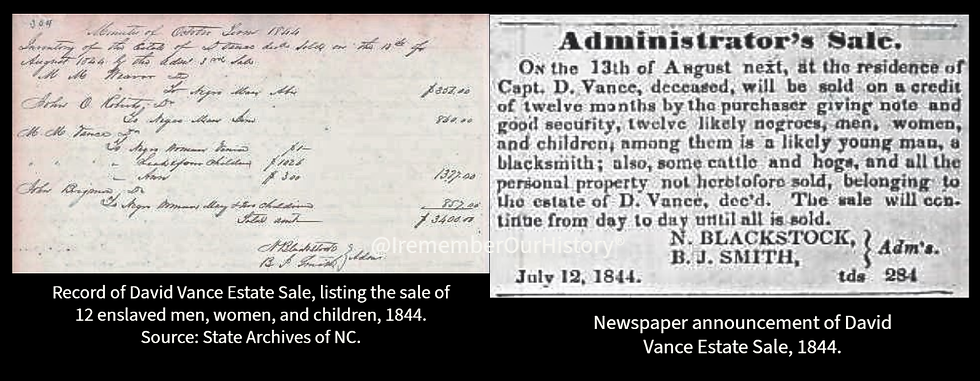 309
Minutes of October Term 1844
Inventory of the Estate of D Vance decd sold on the 13th of
August 1844 by the Adms 3rd Sale
M M Weaver Dr
To Negro Man Abe $357.00
John O. Roberts, Dr
To Negro Man 860.00
M M Vance Dr
To Negro Woman Venia $1
children $1026
$300 1327.00
John Dr
To Negro Woman May & two children 857.00
Total amt $3400.00
N Blackstock
B J Smith Adms
@IrememberOurHistory
Record of David Vance Estate Sale, listing the sale of
12 enslaved men, women, and children, 1844.
Source: State Archives of NC.
Administrator's Sale.
ON the 13th of August next, at the residence of
Capt. D. Vance, deceased, will be sold on a credit
of twelve months by the purchaser giving note and
good security, twelve likely negroes, men, women,
and children; among them is a likely young man, a
blacksmith; also, some cattle and hogs, and all the
personal property not heretofore sold, belonging to
the estate of D. Vance, dec'd. The sale will con-
tinue from day to day until all is sold.
N. BLACKSTOCK, } Adm's.
B. J. SMITH,
July 12, 1844. tds 284
Newspaper announcement of David
Vance Estate Sale, 1844.